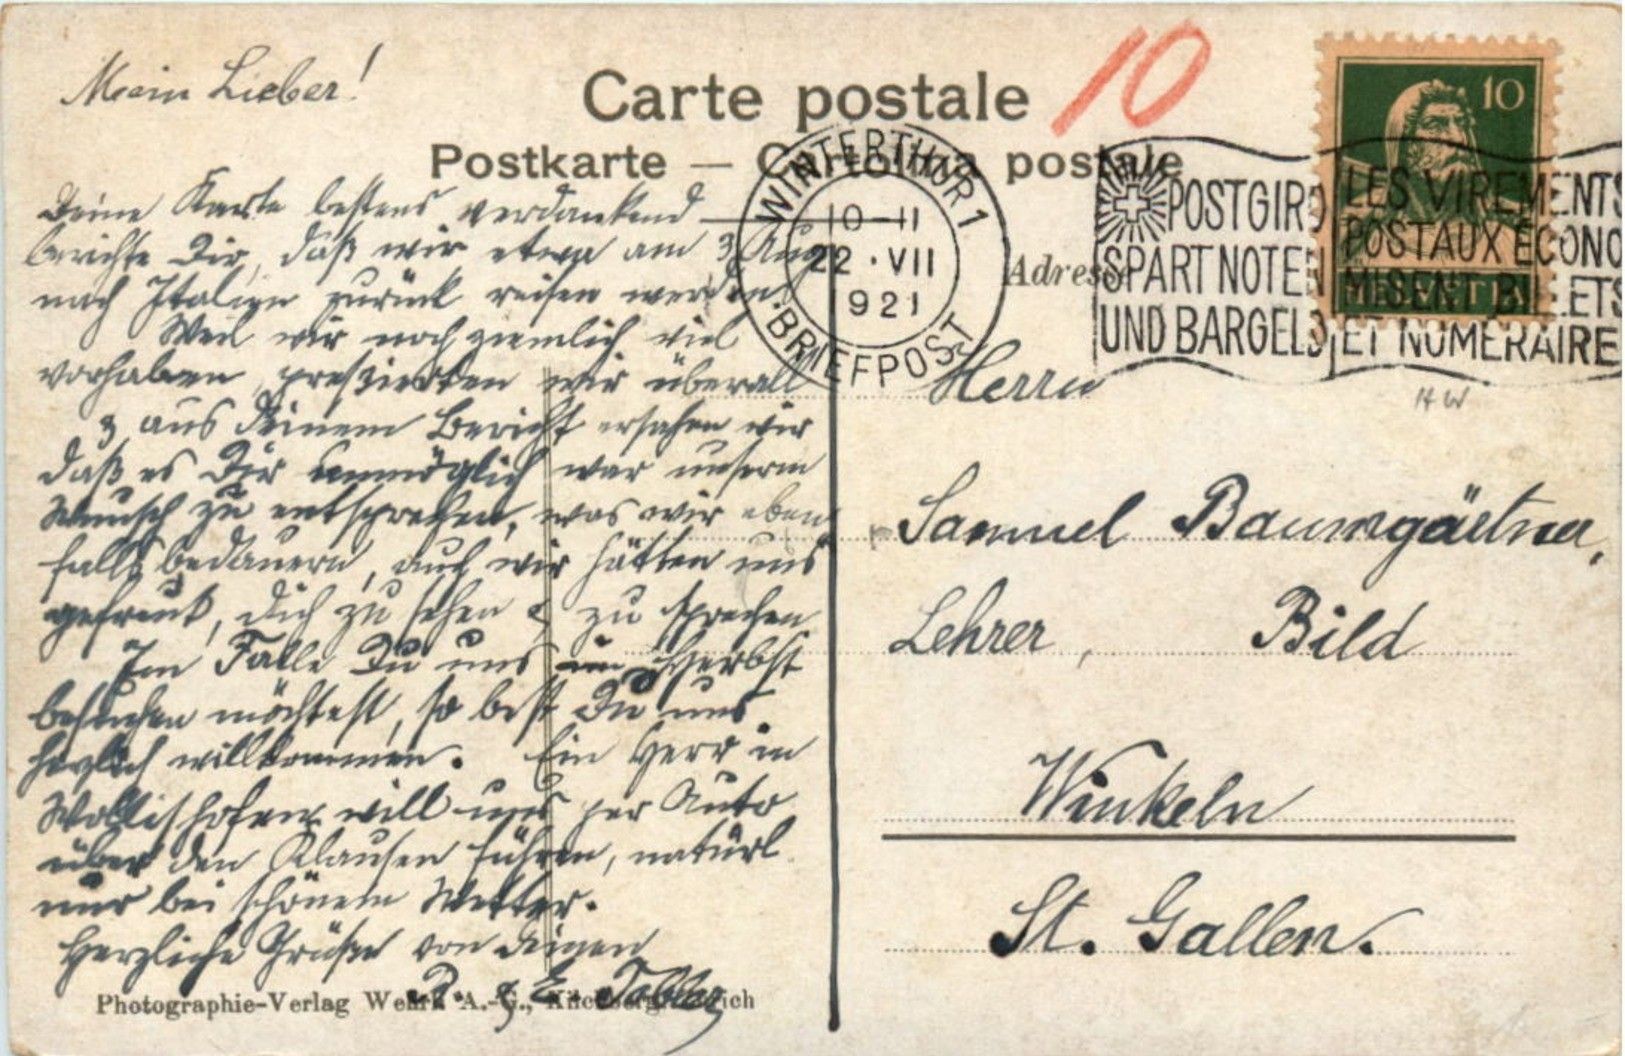 Mein Lieber!
Carte postale
10
Postkarte — Cartolina postale
Deine Karte bestens verdankend
berichte Dir, daß wir etwa am 3 Aug.
nach Italien zurück reisen werden.
Weil wir noch ziemlich viel
vorhaben, pressierten wir überall
& aus Deinem Bericht ersahen wir
daß es Dir unmöglich war unserm
Wunsch zu entsprechen, was wir eben
falls bedauern, auch wir hätten uns
gefreut, Dich zu sehen & zu sprechen
Im Falle Du uns im Herbst
besuchen möchtest, so bist Du uns
herzlich willkommen. Ein Herr in
Wollishofen will uns per Auto
über den Klausen führen, natürl.
nur bei schönem Wetter.
Herzliche Grüße von Deinen
& E. Tobler
Photographie-Verlag Wehrli A.-G., Kilchberg Zürich
WINTERTHUR 1
10-11
22·VII
1921
BRIEFPOST
POSTGIRO
SPART NOTEN
UND BARGELD
LES VIREMENTS
POSTAUX ÉCONO
MISENT BILLETS
ET NUMÉRAIRE
10
HELVETIA
Adresse
HW
Herrn
Samuel Baumgärtner,
Lehrer, Bild
Winkeln
St. Gallen.